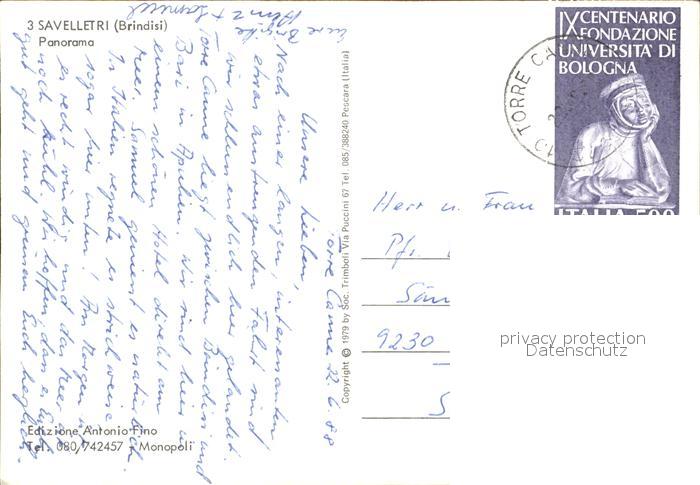 3 SAVELLETRI (Brindisi)
Panorama
Torre Canne 22.6.88
Unsere Lieben,
Nach einer langen, interessanten
etwas anstrengenden Fahrt sind
wir schlussendlich hier gelandet.
Torre Canne liegt zwischen Brindisi und
Bari in Apulien. Wir sind hier in
einem schönen Hotel direkt am
Meer. Samuel geniesst es natürlich
In Italien regnete es strichweise
sogar hier unten! Am Morgen ist
es recht windig und das Meer
noch kühl. Wir hoffen, dass es Euch
gut geht und grüssen Euch herzlich
Eure Brigitte
Heinz + Samuel
Edizione Antonio Fino
Tel. 080/742457 - Monopoli
Copyright © 1979 by Soc. Trimboli Via Puccini 67 Tel. 085/388240 Pescara (Italia)
IX CENTENARIO
FONDAZIONE
UNIVERSITA' DI
BOLOGNA
ITALIA 500
TORRE CA
Herr u. Frau
Pfr.
9230
S
privacy protection
Datenschutz